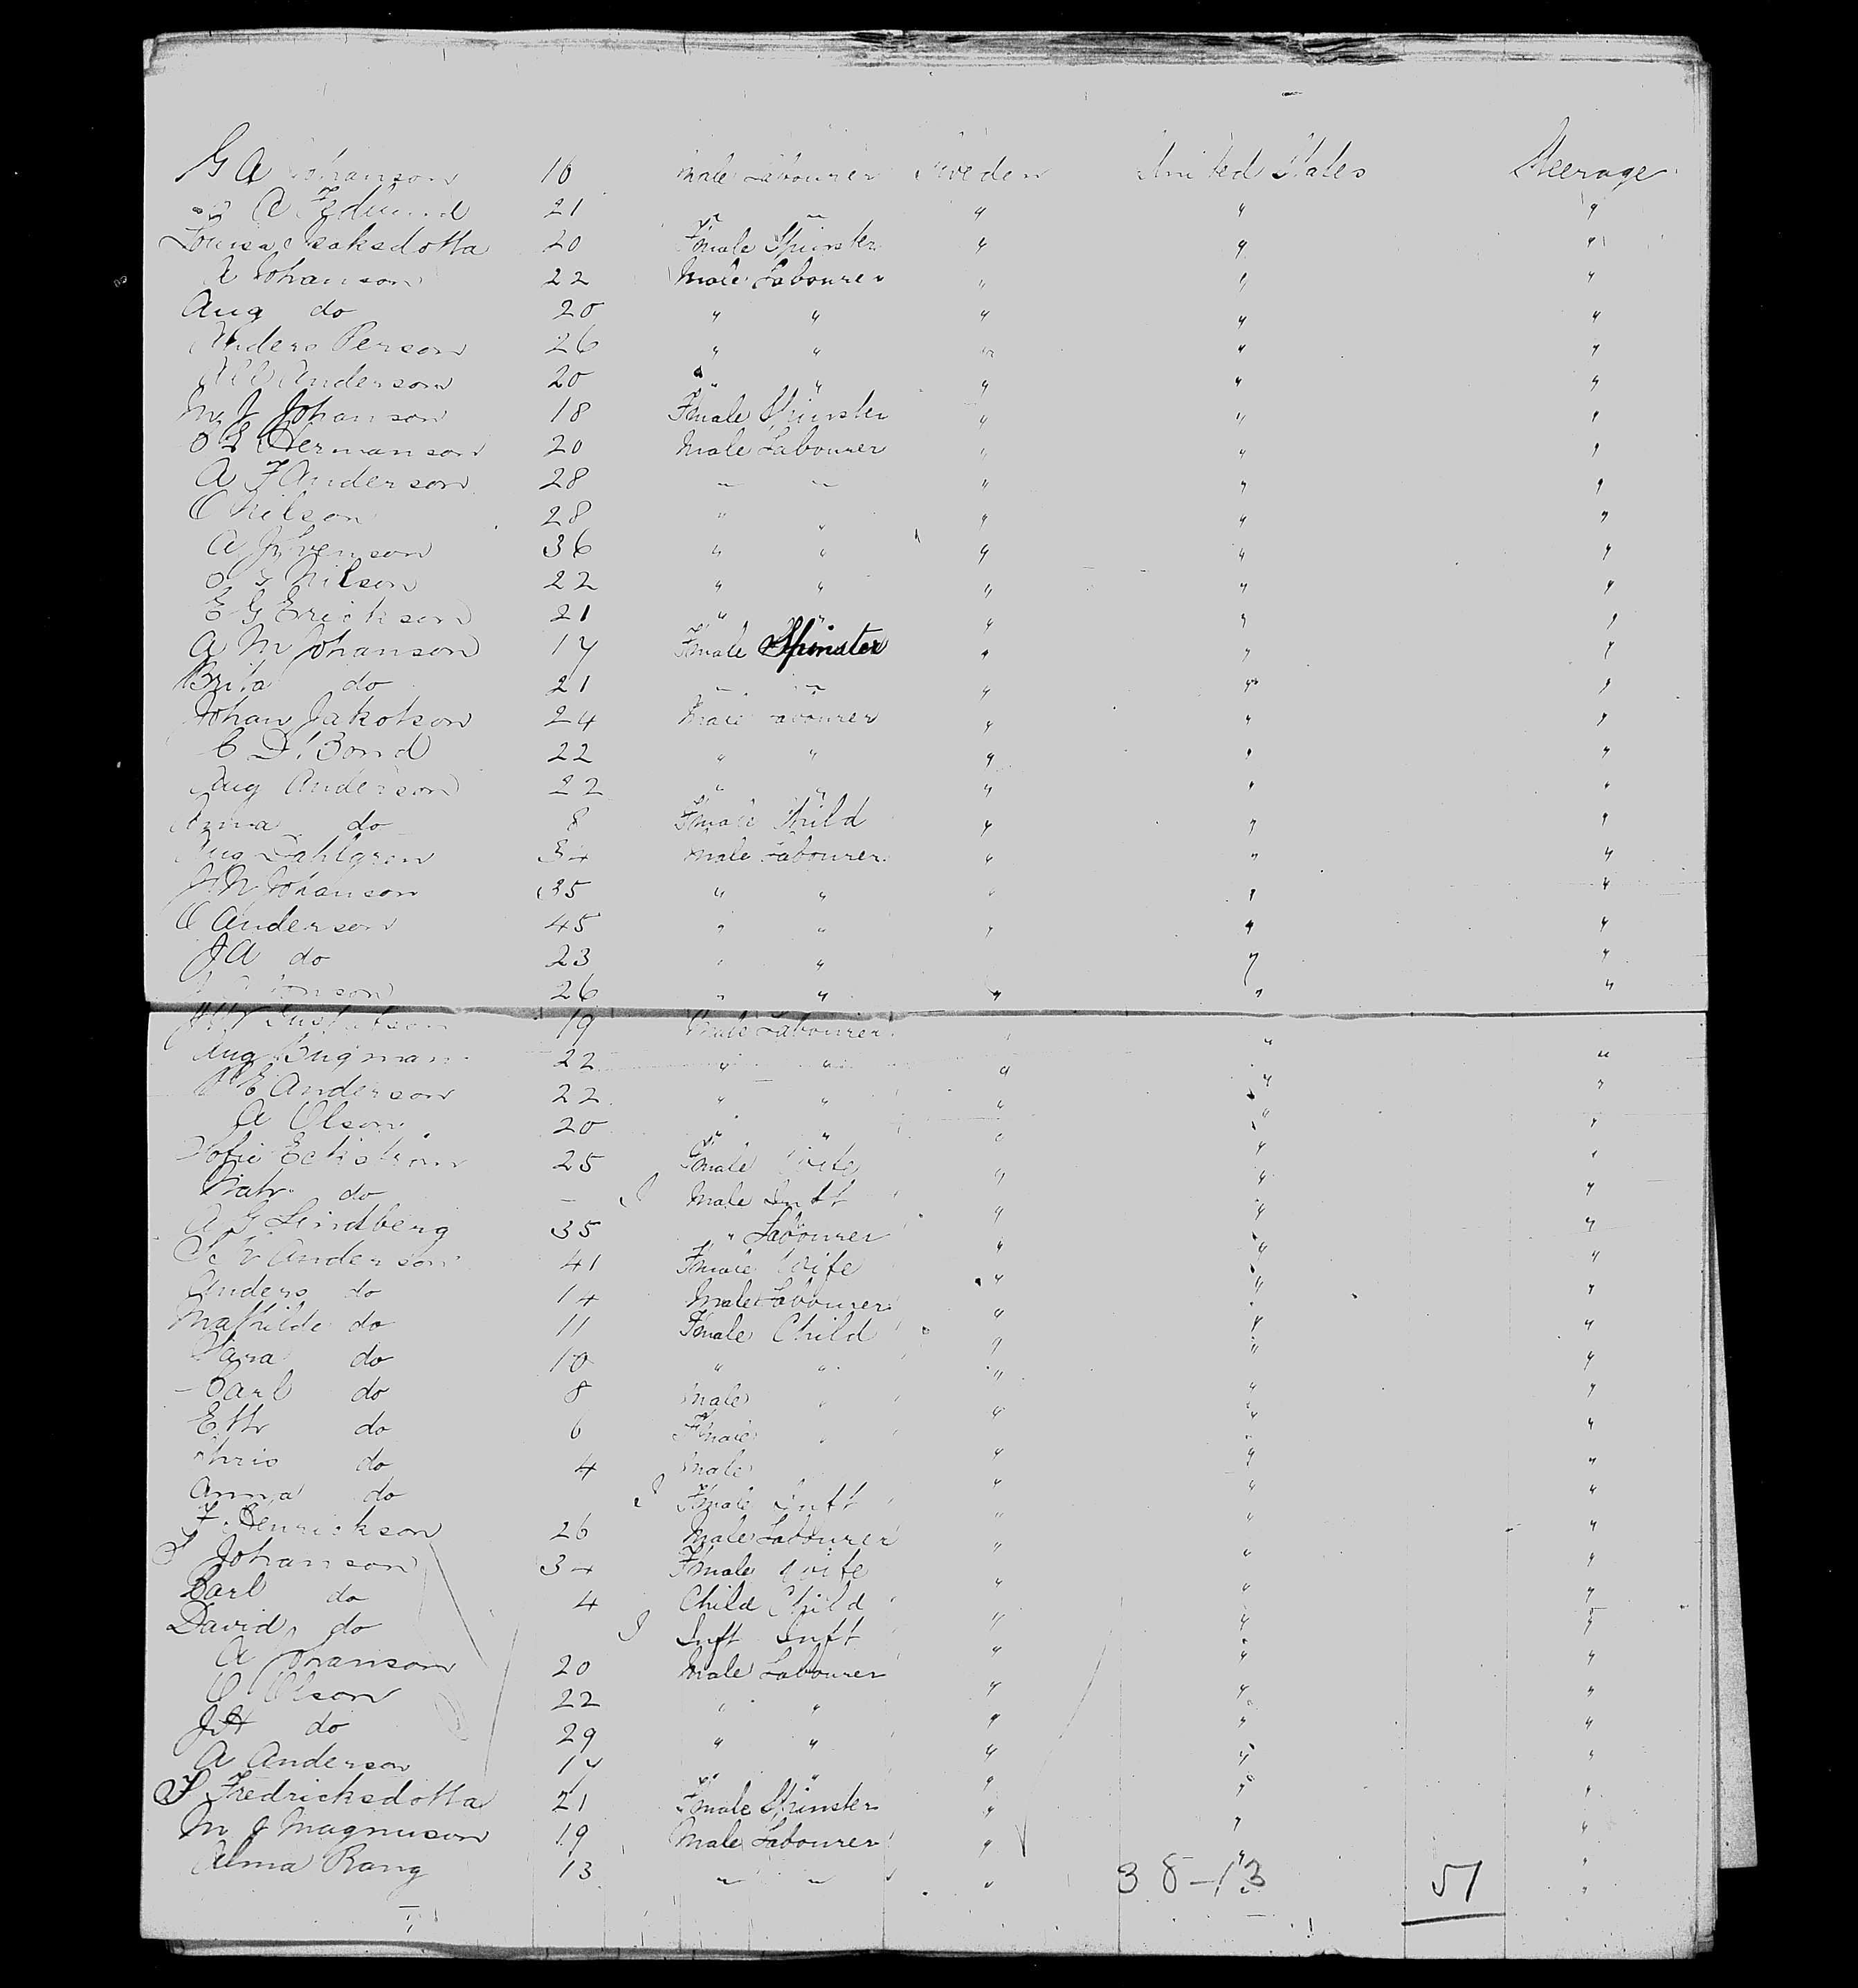 G A Johanson 16 Male Labourer Sweden United States Steerage
A Edlund 21 " " " " "
Louisa Isaksdotta 20 Female Spinster " " "
A Johanson 22 Male Labourer " " "
Aug do 20 " " " " "
Anders Person 26 " " " " "
Anderson 20 " " " " "
M J Johanson 18 Female Spinster " " "
Hermanson 20 Male Labourer " " "
A F Anderson 28 " " " " "
O Nilson 28 " " " " "
A J Svenson 36 " " " " "
Nilson 22 " " " " "
E G Erickson 21 " " " " "
A M Johanson 17 Female Spinster " " "
Brita do 21 " " " " "
Johan Jakobson 24 Male Labourer " " "
C D Bond 22 " " " " "
Aug Anderson 22 " " " " "
Anna do 8 Female Child " " "
Aug Dahlgren 34 Male Labourer " " "
J N Johanson 35 " " " " "
O Anderson 45 " " " " "
J A do 23 " " " " "
26 " " " " "
Gustafson 19 Male Labourer " " "
Aug Bugman 22 " " " " "
E Anderson 22 " " " " "
A Olson 20 " " " " "
Sofie Eckstrom 25 Female Wife " " "
do - I Male Inft " " "
A G Lindberg 35 " Labourer " " "
Anderson 41 Female Wife " " "
Anders do 14 Male Labourer " " "
Mathilde do 11 Female Child " " "
do 10 " " " " "
Carl do 8 Male " " " "
do 6 Female " " " "
Chris do 4 Male " " "
Anna do I Female Inft " " "
F Henrickson 26 Male Labourer " " "
S Johanson 34 Female Wife " " "
Carl do 4 Child Child " " "
David do I Inft Inft " " "
A Johanson 20 Male Labourer " " "
O Olson 22 " " " " "
J H do 29 " " " " "
A Anderson 17 " " " " "
S Fredricksdotta 21 Female Spinster " " "
M J Magnuson 19 Male Labourer " " "
Alma Rang 13 " " " " "
38-13 51